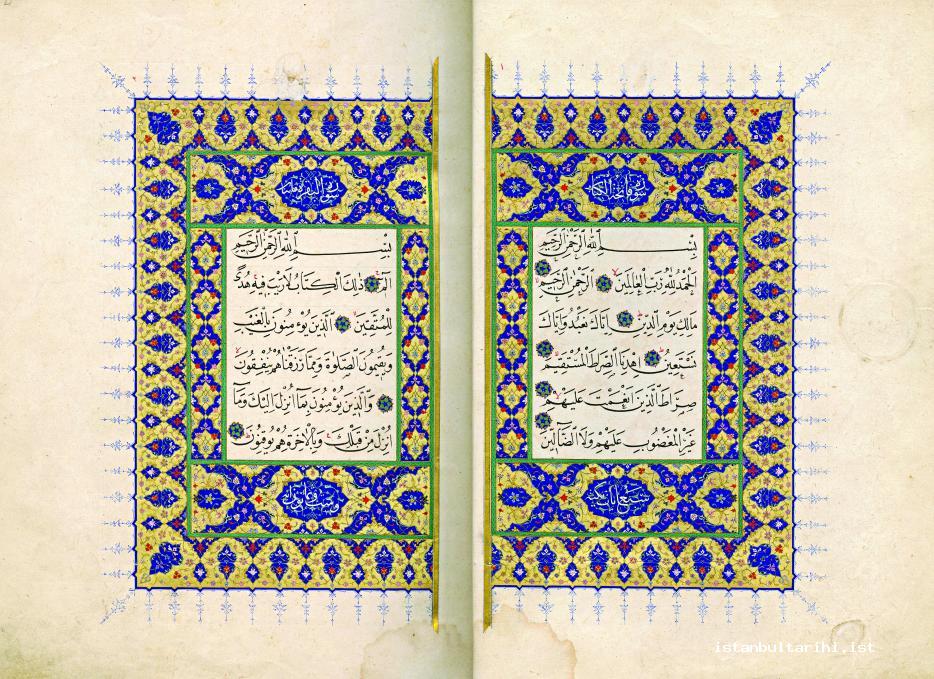 سورة فاتحة الكتاب
بِسْمِ اللهِ الرَّحْمٰنِ الرَّحِيمِ
اَلْحَمْدُ لِلّٰهِ رَبِّ الْعَالَمِينَ الرَّحْمٰنِ الرَّحِيمِ
مَالِكِ يَوْمِ الدِّينِ اِيَّاكَ نَعْبُدُ وَاِيَّاكَ
نَسْتَعِينُ اِهْدِنَا الصِّرَاطَ الْمُسْتَقِيمَ
صِرَاطَ الَّذِينَ اَنْعَمْتَ عَلَيْهِمْ
غَيْرِ الْمَغْضُوبِ عَلَيْهِمْ وَلَا الضَّالِّينَ
سبع ايات
سورة البقرة مائتان
بِسْمِ اللهِ الرَّحْمٰنِ الرَّحِيمِ
الٓمٓ ذٰلِكَ الْكِتَابُ لَا رَيْبَ فِيهِ هُدًى
لِلْمُتَّقِينَ اَلَّذِينَ يُؤْمِنُونَ بِالْغَيْبِ
وَيُقِيمُونَ الصَّلٰوةَ وَمِمَّا رَزَقْنَاهُمْ يُنْفِقُونَ
وَالَّذِينَ يُؤْمِنُونَ بِمَا اُنْزِلَ اِلَيْكَ وَمَا
اُنْزِلَ مِنْ قَبْلِكَ وَبِالْاٰخِرَةِ هُمْ يُوقِنُونَ
istanbultarihi.ist